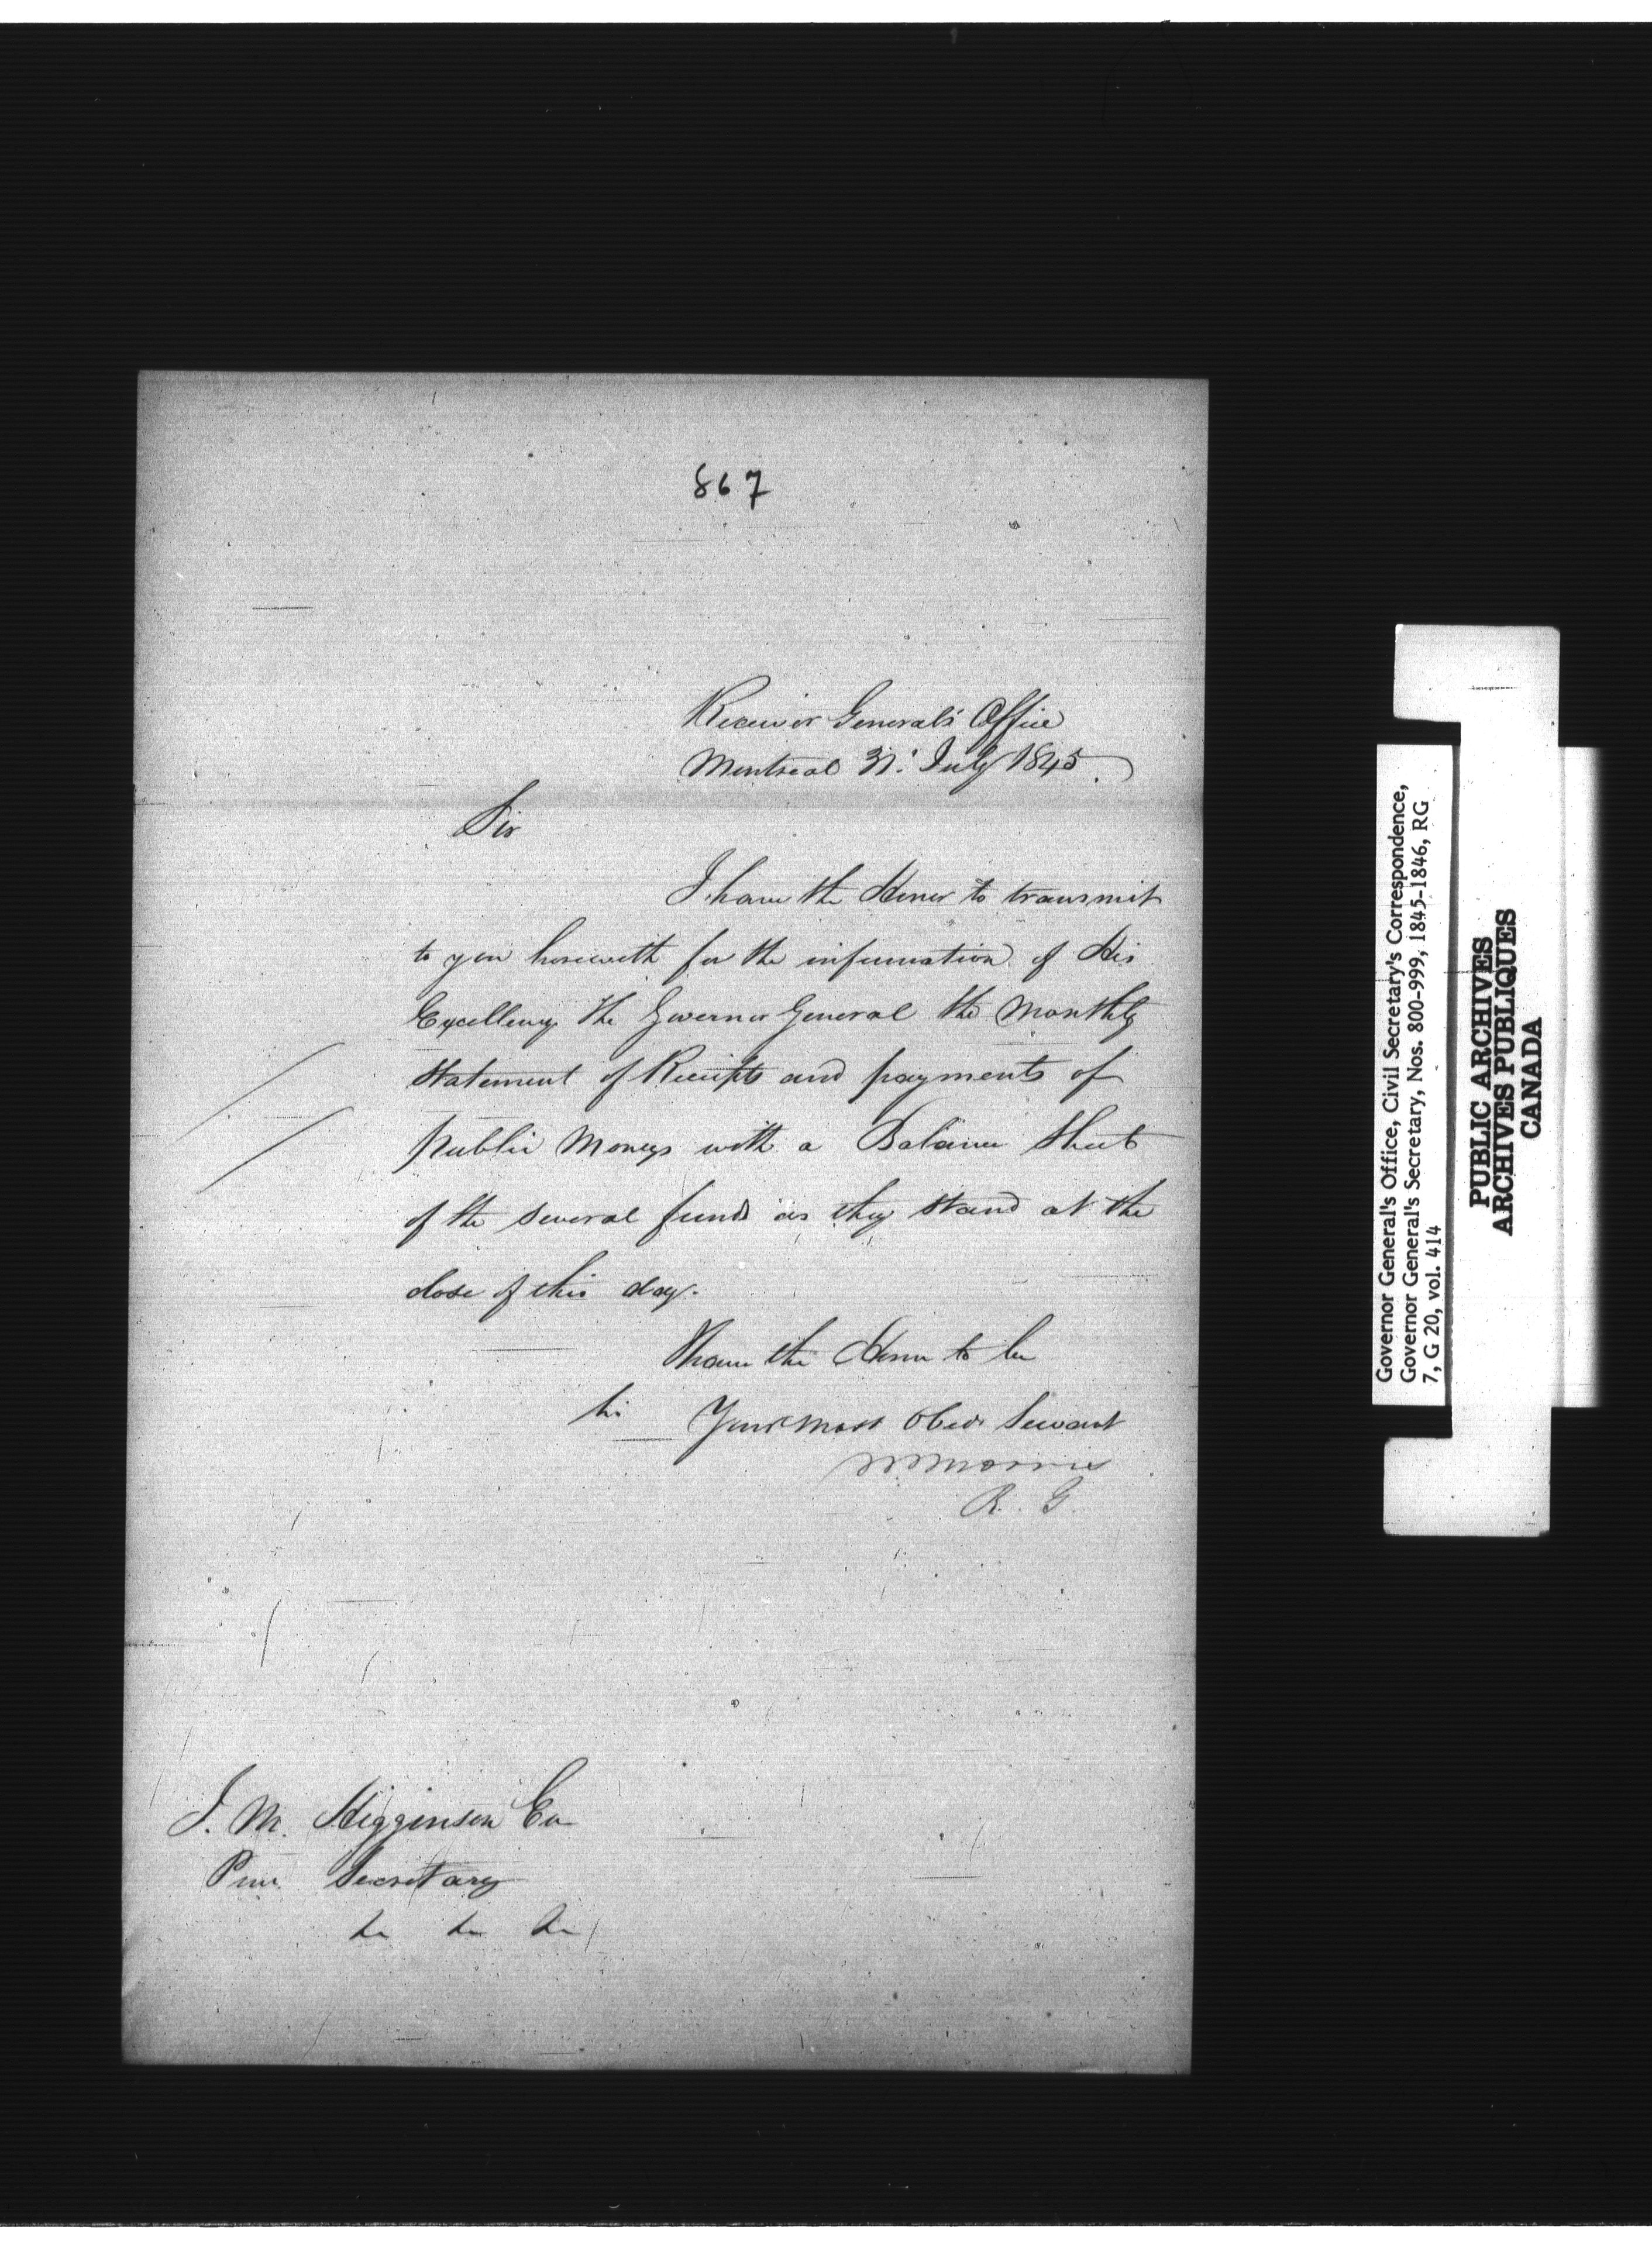 867
Receiver General's Office
Montreal 31st July 1845
Sir
I have the Honor to transmit
to you herewith for the information of His
Excellency The Governor General the Monthly
Statement of Receipts and payments of
public Moneys with a Balance Sheet
of the several funds as they stand at the
close of this day.
I have the Honor to be
Sir Your most Obedt Servant
W Morris
R. G.
J. M. Higginson Esq
Priv Secretary
&c &c &c
Governor General's Office, Civil Secretary's Correspondence,
Governor General's Secretary, Nos. 800-999, 1845-1846, RG
7, G 20, vol. 414
PUBLIC ARCHIVES
ARCHIVES PUBLIQUES
CANADA